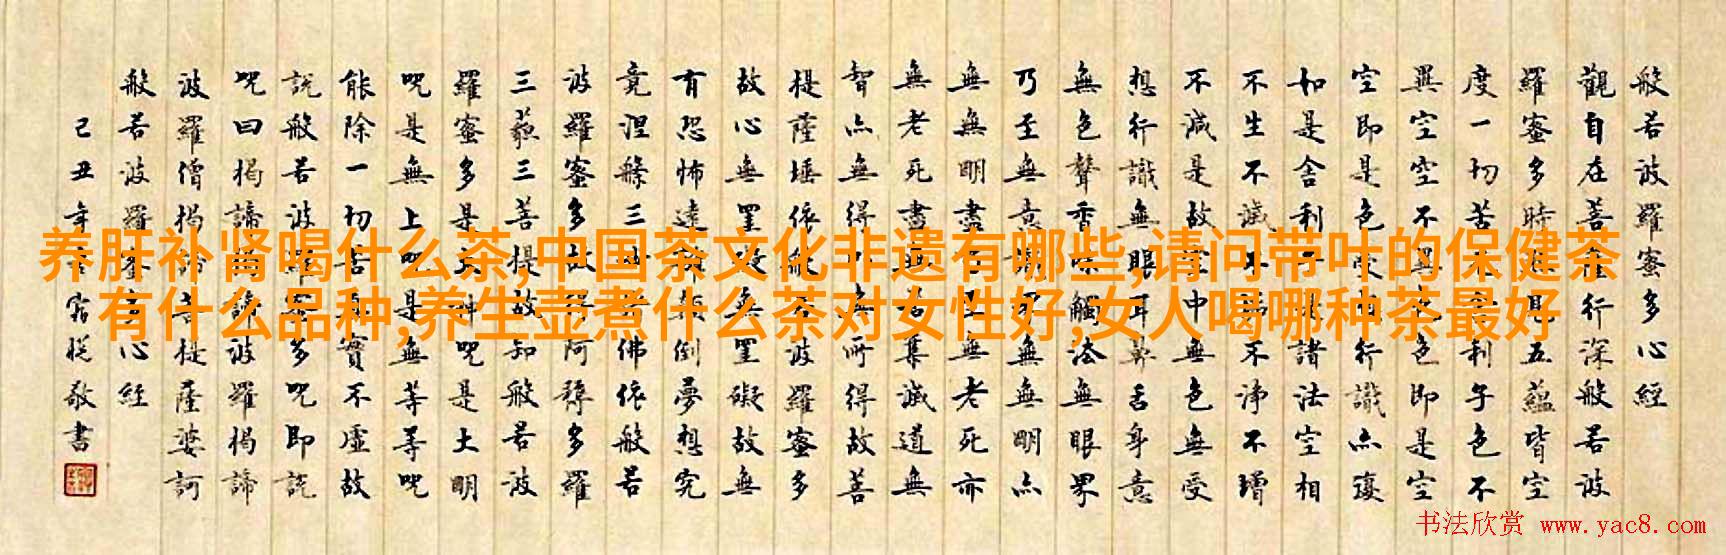 养肝补肾喝什么茶,中国茶文化非遗有哪些,请问带叶的保健茶
有什么品种,养生壶煮什么茶对女性好,女人喝哪种茶最好
般若波羅蜜多心經
觀自在菩薩行深般若波
羅蜜多時照見五蘊皆空
度一切苦厄舍利子色不
異空空不異色色即是空
空即是色受想行識亦復
如是舍利子是諸法空相
不生不滅不垢不淨不增
不減是故空中無色無受
想行識無眼耳鼻舌身意
無色聲香味觸法無眼界
乃至無意識界無無明亦
無無明盡乃至無老死亦
無老死盡無苦集滅道無
智亦無得以無所得故菩
提薩埵依般若波羅蜜多
故心無罣礙無罣礙故無
有恐怖遠離顛倒夢想究
竟涅槃三世諸佛依般若
波羅蜜多故得阿耨多羅
三藐三菩提故知般若波
羅蜜多是大神呪是大明
呪是無上呪是無等等呪
能除一切苦真實不虛故
説般若波羅蜜多呪即説
呪曰揭諦揭諦波羅揭諦
波羅僧揭諦菩提薩婆訶
般若波羅蜜多心經
己丑年敬書
书法欣赏 www.yac8.com